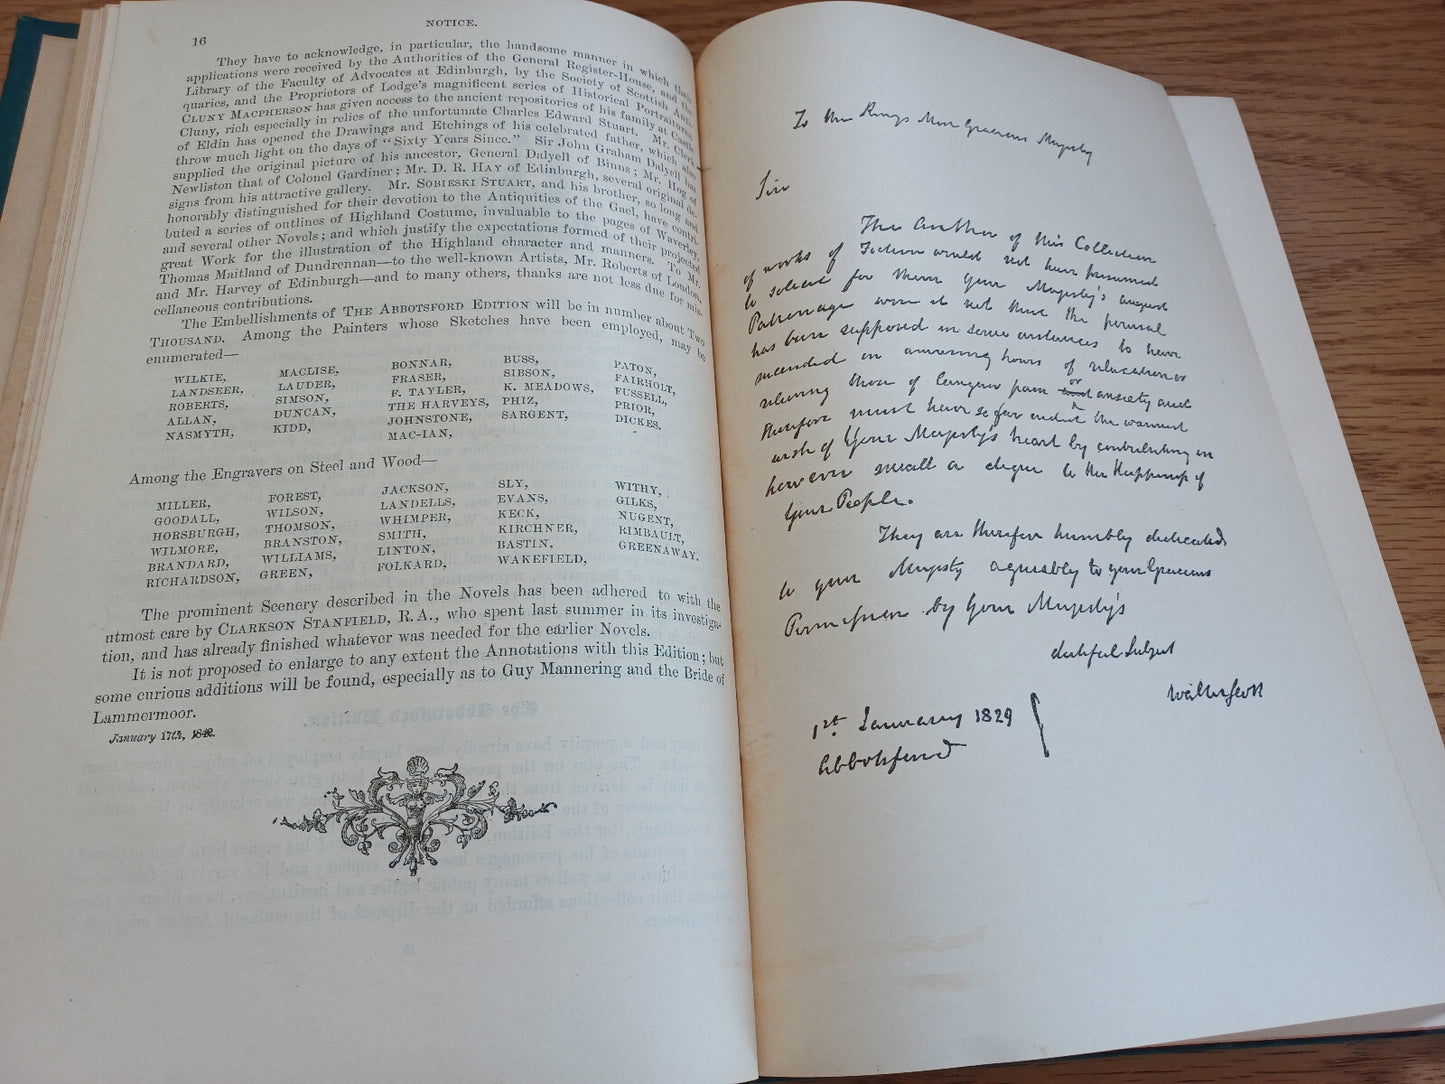 NOTICE.
16
They have to acknowledge, in particular, the handsome manner in which their
applications were received by the Authorities of the General Register-House, and the
Library of the Faculty of Advocates at Edinburgh, by the Society of Scottish Anti-
quaries, and the Proprietors of Lodge's magnificent series of Historical Portraitures.
CLUNY MACPHERSON has given access to the ancient repositories of his family at Castle
Cluny, rich especially in relics of the unfortunate Charles Edward Stuart. Mr. Clerk
of Eldin has opened the Drawings and Etchings of his celebrated father, which also
throw much light on the days of "Sixty Years Since." Sir John Graham Dalyell has
supplied the original picture of his ancestor, General Dalyell of Binns; Mr. Hog of
Newliston that of Colonel Gardiner; Mr. D. R. HAY of Edinburgh, several original de-
signs from his attractive gallery. Mr. SOBIESKI STUART, and his brother, so long and
honorably distinguished for their devotion to the Antiquities of the Gael, have contri-
buted a series of outlines of Highland Costume, invaluable to the pages of Waverley,
and several other Novels; and which justify the expectations formed of their projected
great Work for the illustration of the Highland character and manners. To Mr.
Thomas Maitland of Dundrennan—to the well-known Artists, Mr. Roberts of London,
and Mr. Harvey of Edinburgh—and to many others, thanks are not less due for mis-
cellaneous contributions.
The Embellishments of THE ABBOTSFORD EDITION will be in number about Two
THOUSAND. Among the Painters whose Sketches have been employed, may be
enumerated—
WILKIE, MACLISE, BONNAR, BUSS, PATON,
LANDSEER, LAUDER, FRASER, SIBSON, FAIRHOLT,
ROBERTS, SIMSON, F. TAYLER, K. MEADOWS, FUSSELL,
ALLAN, DUNCAN, THE HARVEYS, PHIZ, PRIOR,
NASMYTH, KIDD, JOHNSTONE, SARGENT, DICKES.
MAC-IAN,
Among the Engravers on Steel and Wood—
MILLER, FOREST, JACKSON, SLY, WITHY,
GOODALL, WILSON, LANDELLS, EVANS, GILKS,
HORSBURGH, THOMSON, WHIMPER, KECK, NUGENT,
WILMORE, BRANSTON, SMITH, KIRCHNER, RIMBAULT,
BRANDARD, WILLIAMS, LINTON, BASTIN, GREENAWAY.
RICHARDSON, GREEN, FOLKARD, WAKEFIELD,
The prominent Scenery described in the Novels has been adhered to with the
utmost care by CLARKSON STANFIELD, R.A., who spent last summer in its investiga-
tion, and has already finished whatever was needed for the earlier Novels.
It is not proposed to enlarge to any extent the Annotations with this Edition; but
some curious additions will be found, especially as to Guy Mannering and the Bride of
Lammermoor.
January 17th, 1842.
To the Kings Most Gracious Majesty
Sire
The Author of this Collection
of works of Fiction would not have presumed
to solicit for them your Majesty's august
Patronage were it not that the perusal
has been supposed in some instances to have
succeeded in amusing hours of relaxation or
relieving those of languor pain or anxiety and
therefore must have so far aided the warmest
wish of Your Majesty's heart by contributing in
however small a degree to the Happiness of
your People.
They are therefore humbly dedicated
to your Majesty agreeably to your Gracious
Permission by Your Majesty's
dutiful Subject
Walter Scott
1st January 1829
Abbotsford